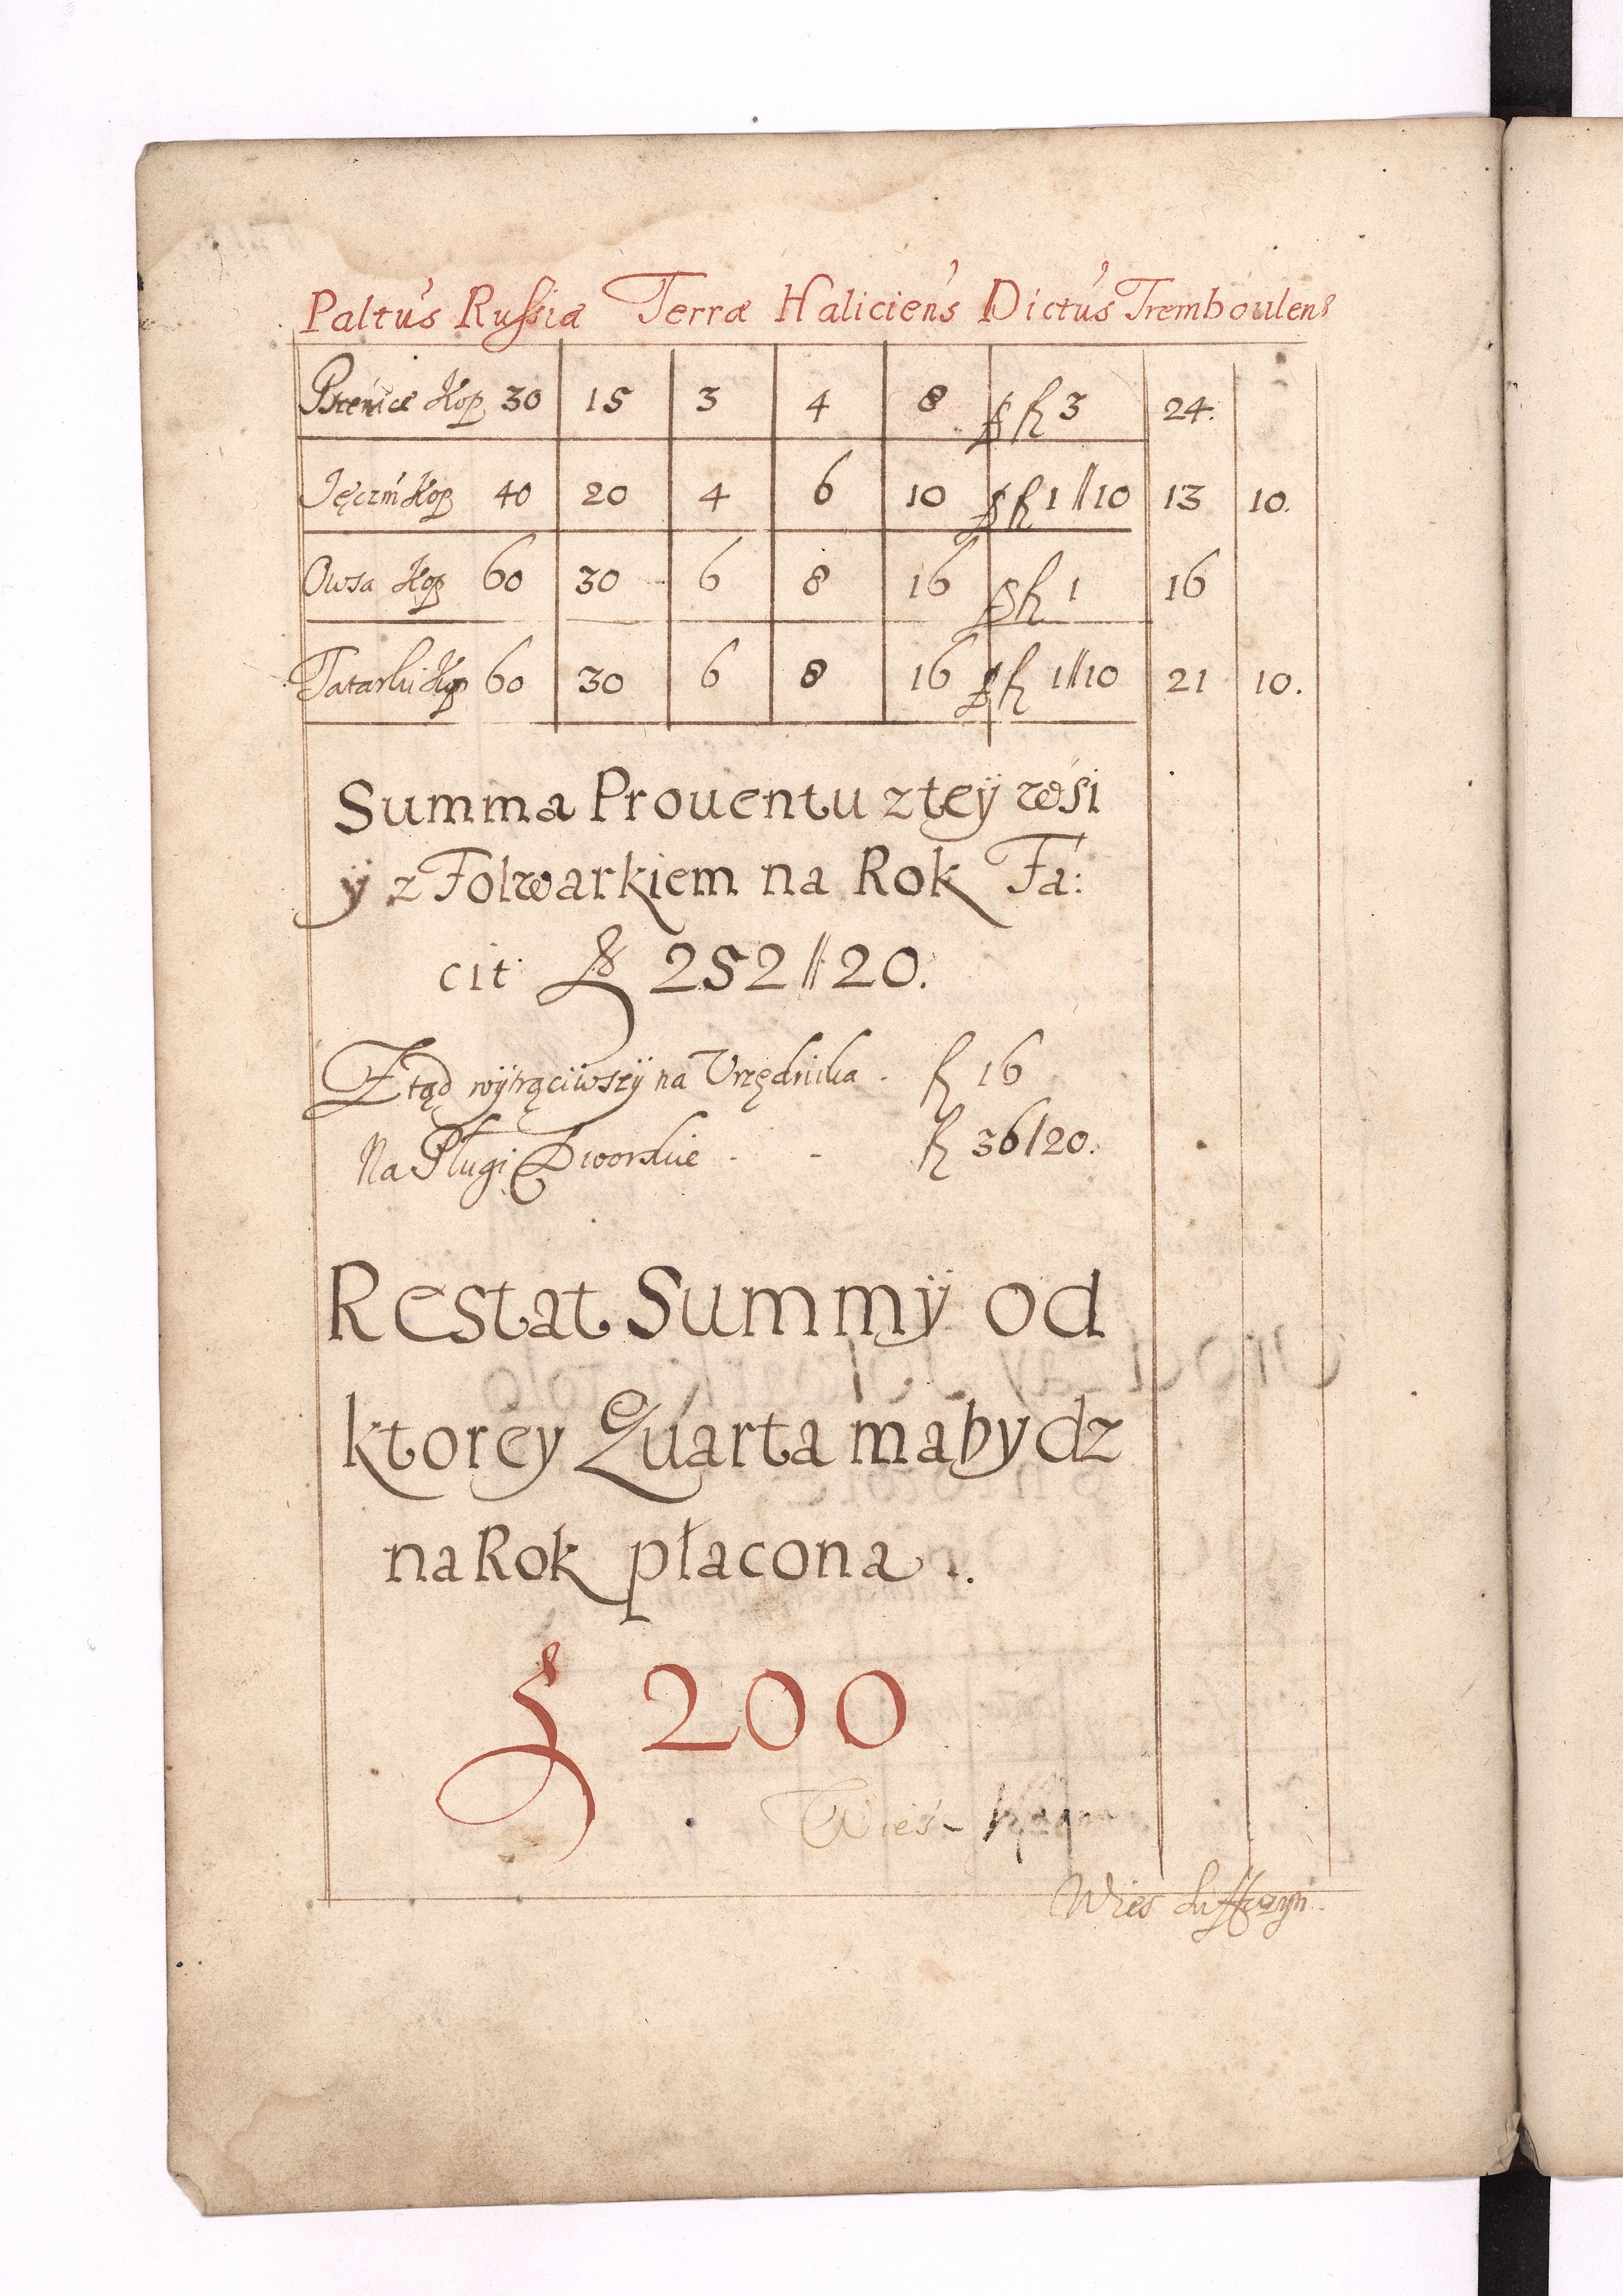 Paltus Russiæ Terræ Haliciens Dictus Tremboulens
Pszenice Kop 30 15 3 4 8 p fl 3 24.
Jęczm Kop 40 20 4 6 10 p fl 1//10 13 10.
Owsa Kop 60 30 6 8 16 p fl 1 16
Tatarki Kop 60 30 6 8 16 p fl 1//10 21 10.
Summa Prouentu z teÿ wsi
ÿ z Folwarkiem na Rok Fa:
cit fl 252//20.
Ztąd wÿtrąciwszÿ na Vrzędnika. fl 16
Na Pługi Dworskie fl 36/20.
Restat Summÿ od
ktorey Quarta ma bydz
na Rok płacona.
fl 200
Wieś
Wies